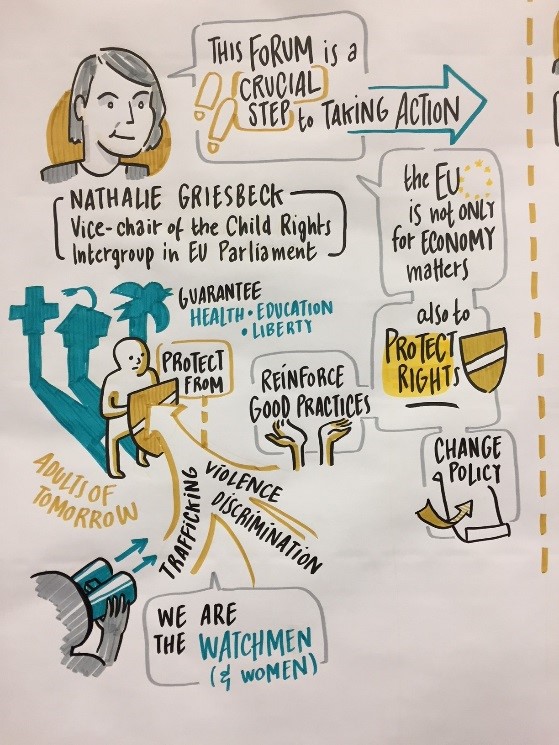 THIS FORUM is a
CRUCIAL
STEP to TAKING ACTION
NATHALIE GRIESBECK
Vice-chair of the Child Rights
Intergroup in EU Parliament
the EU
is not ONLY
for ECONOMY
matters
also to
PROTECT
RIGHTS
GUARANTEE
HEALTH • EDUCATION
• LIBERTY
PROTECT
FROM
REINFORCE
GOOD PRACTICES
CHANGE
POLICY
ADULTS OF
TOMORROW
TRAFFICKING
VIOLENCE
DISCRIMINATION
WE ARE
THE WATCHMEN
(& WOMEN)